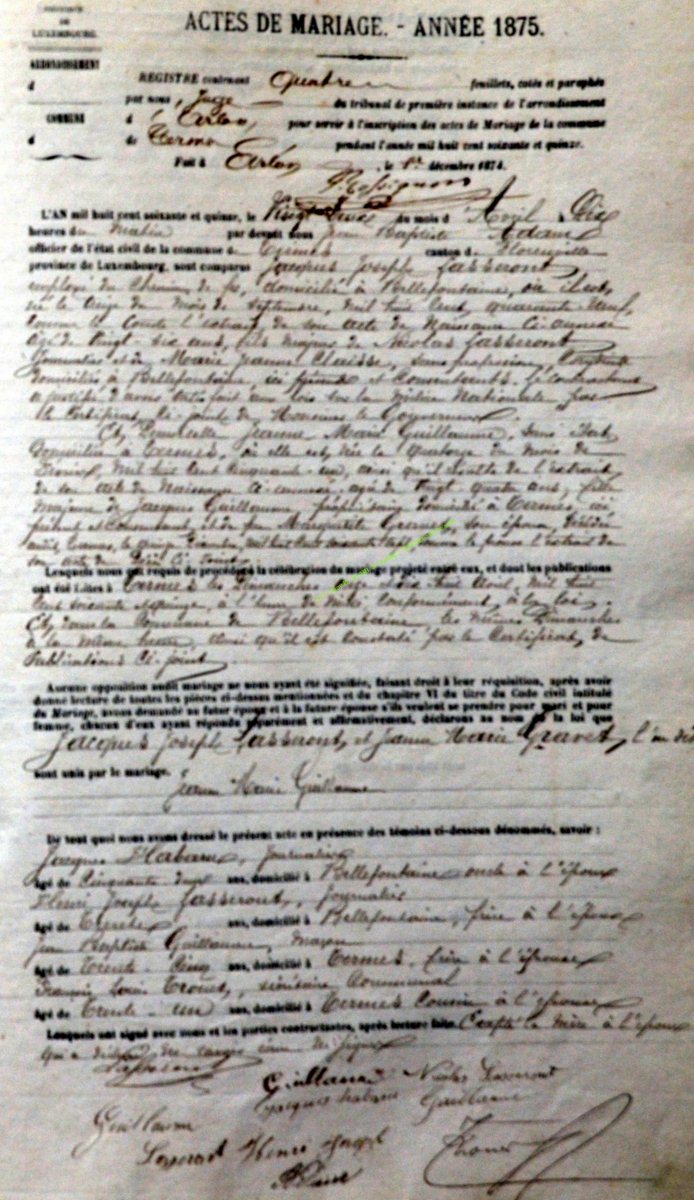 PROVINCE DE
LUXEMBOURG.
ACTES DE MARIAGE. - ANNÉE 1875.
ARRONDISSEMENT
d
COMMUNE
d
REGISTRE contenant Quatre feuillets, cotés et paraphés
par nous, Juge du tribunal de première instance de l'arrondissement
d'Arlon, pour servir à l'inscription des actes de Mariage de la commune
de Termes pendant l'année mil huit cent soixante et quinze.
Fait à Arlon, le 1er décembre 1874.
L'AN mil huit cent soixante et quinze, le Vingt du mois d'Avril à Dix
heures du Matin par devant nous Jean Baptiste Adam
officier de l'état civil de la commune de Termes canton de Florenville
province de Luxembourg, sont comparus Jacques Joseph Lasseront
employé du Chemin de fer, domicilié à Bellefontaine, où il est
né le seize du mois de Septembre, mil huit cent quarante neuf,
comme le Conste l'extrait de son acte de Naissance Ci-annexé
âgé de Vingt-six ans, fils majeur de Nicolas Lasseront
Journalier et de Marie Jeanne Claisse, sans profession
domiciliés à Bellefontaine, ici présents et Consentants. Le contractant
a justifié d'avoir satisfait aux lois sur la Milice Nationale par
le Certificat Ci-joint de Monsieur le Gouverneur.
Et Jeanne Marie Guillaume, sans état
domiciliée à Termes, où elle est née le quatorze du mois de
mil huit cent cinquante-un, ainsi qu'il résulte de l'extrait
de son acte de Naissance Ci-annexé, âgée de Vingt quatre ans, fille
majeure de Jacques Guillaume, propriétaire domicilié à Termes, ici
présent et Consentant, et de feu Marguerite son épouse, décédée
mil huit cent soixante sept, comme le prouve l'extrait de
son acte de Décès Ci-joint.
Lesquels nous ont requis de procéder à la célébration du mariage projeté entre eux, et dont les publications
ont été faites à Termes les Dimanches et dix huit Avril, mil huit
cent soixante quinze, à l'heure de midi Conformément à la loi.
Et dans la Commune de Bellefontaine, les mêmes Dimanches
à la même heure, ainsi qu'il est Constaté par le Certificat, de
Publications Ci-joint.
Aucune opposition audit mariage ne nous ayant été signifiée, faisant droit à leur réquisition, après avoir
donné lecture de toutes les pièces ci-dessus mentionnées et du chapitre VI du titre du Code civil intitulé
du Mariage, avons demandé au futur époux et à la future épouse s'ils veulent se prendre pour mari et pour
femme, chacun d'eux ayant répondu séparément et affirmativement, déclarons au nom de la loi que
Jacques Joseph Lasseront, et Jeanne Marie Gravet,
sont unis par le mariage.
Jeanne Marie Guillaume
De tout quoi nous avons dressé le présent acte en présence des témoins ci-dessous dénommés, savoir :
Jacques Habaru, Journalier
âgé de Cinquante ans, domicilié à Bellefontaine oncle à l'époux
Henri Joseph Lasseront, Journalier
âgé de Trente ans, domicilié à Bellefontaine, frère à l'époux
Jean Baptiste Guillaume, maçon
âgé de Trente-Cinq ans, domicilié à Termes, frère à l'épouse
François Louis secrétaire Communal
âgé de Trente-un ans, domicilié à Termes Cousin à l'épouse
Lesquels ont signé avec nous et les parties contractantes, après lecture faite, Excepté la mère à l'époux
qui a déclaré signer
Guillaume Nicolas Lasseront
Jacques Habaru Guillaume
Guillaume
Lasseront Henri Joseph